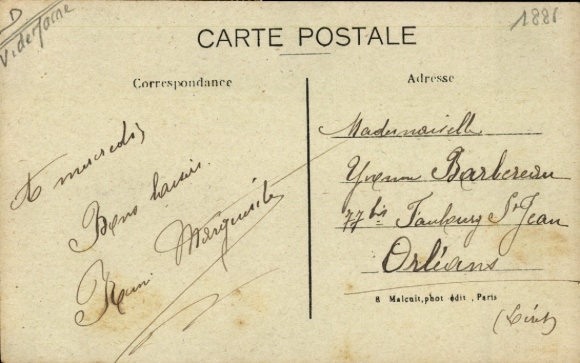 D
1886
CARTE POSTALE
Correspondance
Adresse
A mercredi
Bons baisers
Marguerite
Mademoiselle
Yvonne Barbereau
77 bis Faubourg St Jean
Orléans
8 Malcuit, phot édit, Paris
(Loiret)